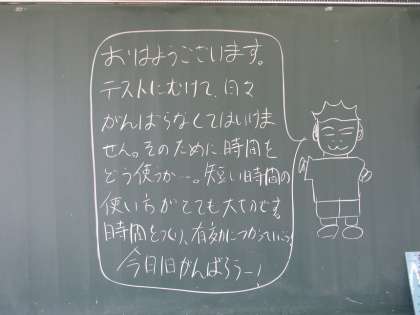 おはようございます。
テストにむけて、日々
がんばらなくてはいけま
せん。そのために時間を
どう使うかー。短い時間の
使い方がとても大切です。
時間をつくり、有効につかっていこう
今日1日がんばろうー！